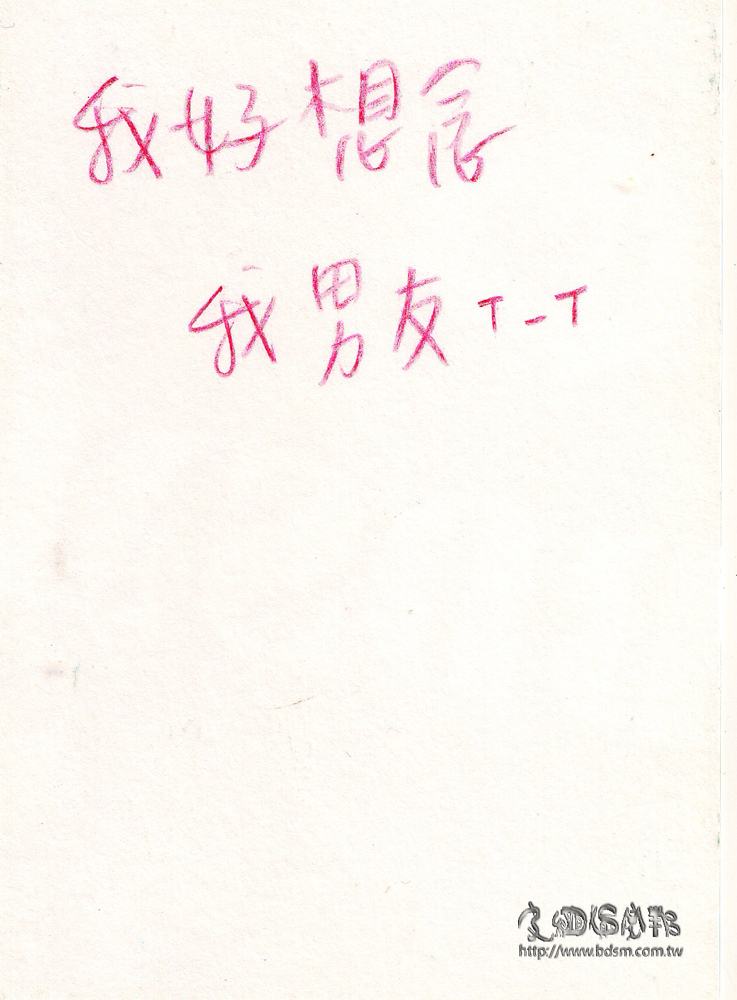 我好想念
我男友T_T
http://www.bdsm.com.tw